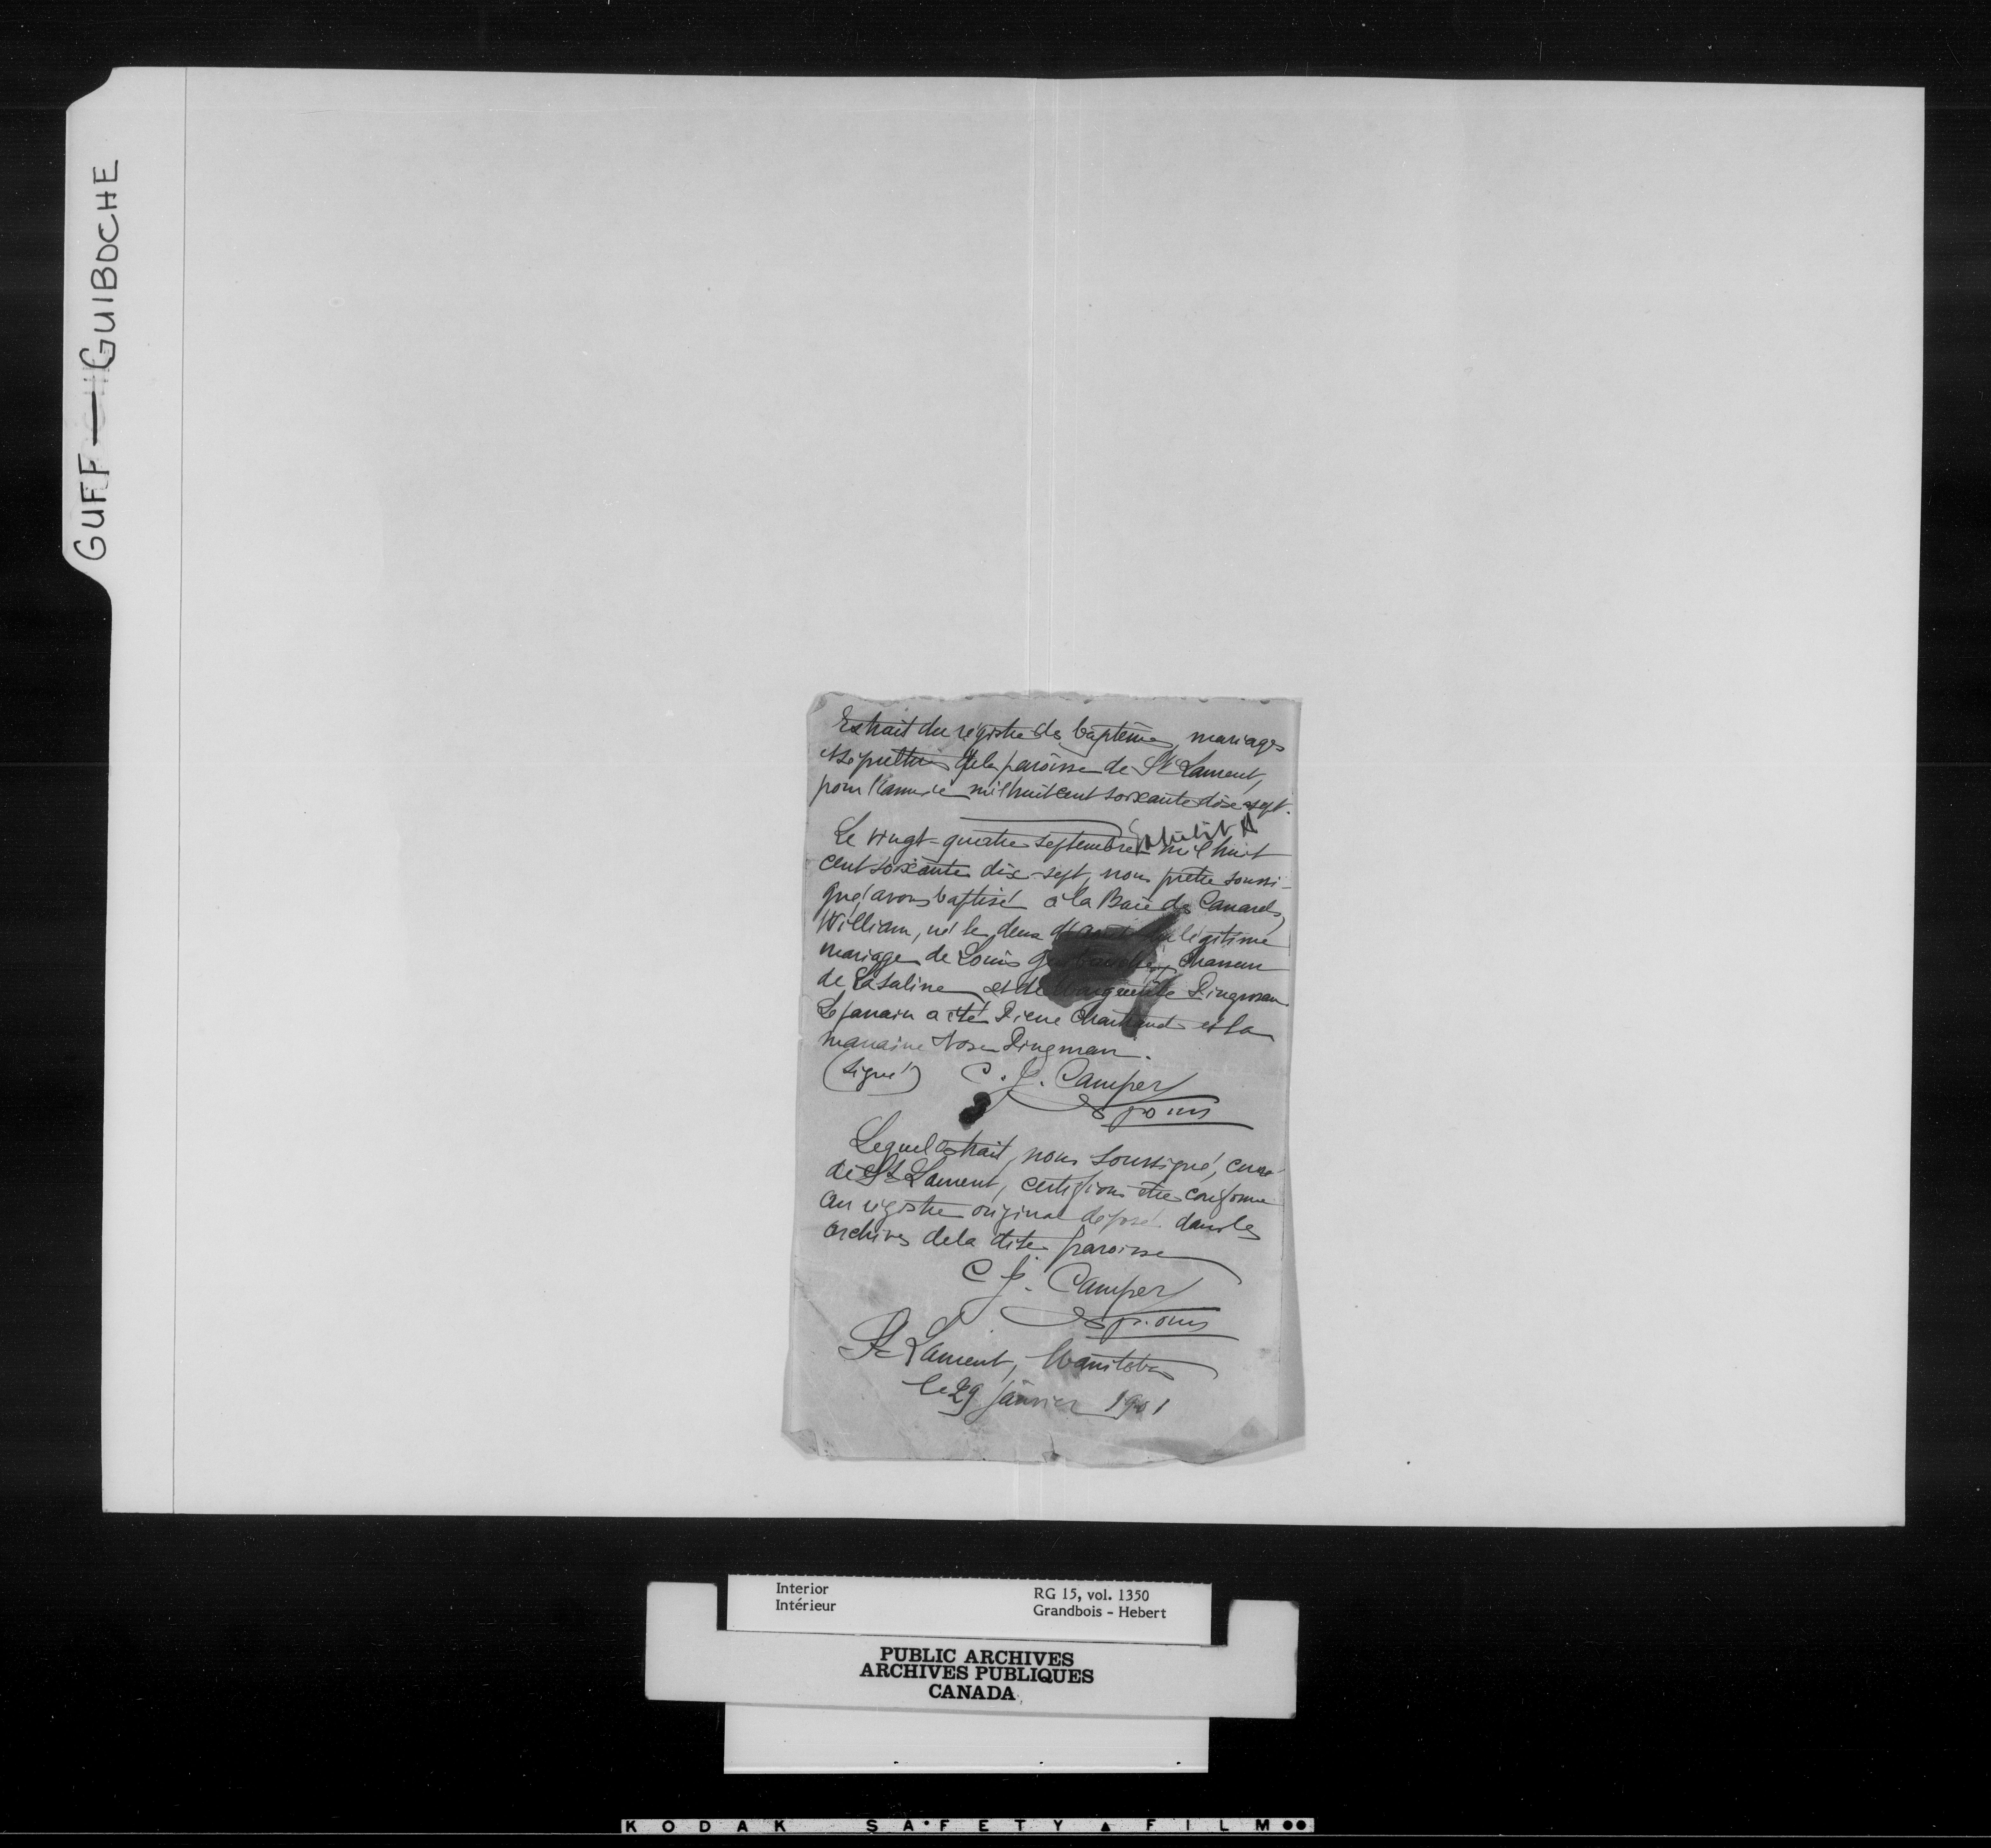 GUFF — GUIBOCHE
Extrait du régistre des baptêmes, mariages
et sépultures de la paroisse de St Laurent,
pour l'année mil huit cent soixante dix-sept.
Exhibit A
Le vingt-quatre septembre mil huit
cent soixante dix-sept, nous prêtre soussi-
gné, avons baptisé à la Baie des Canards,
William, né le deux légitime
mariage de Louis chasseur
de la Saline et de Marguerite Dingman.
Le parain a été Pierre Chartrand et la
maraine Rose Dingman.
(Signé) C. J. Camper
ptr. omi
Lequel extrait, nous soussigné, curé
de St Laurent, certifions être conforme
au régistre original déposé dans les
archives de la dite paroisse
C J. Camper
ptr. omi
St Laurent, Manitoba
le 29 janvier 1901
Interior
Intérieur
RG 15, vol. 1350
Grandbois - Hebert
PUBLIC ARCHIVES
ARCHIVES PUBLIQUES
CANADA
KODAK SAFETY FILM